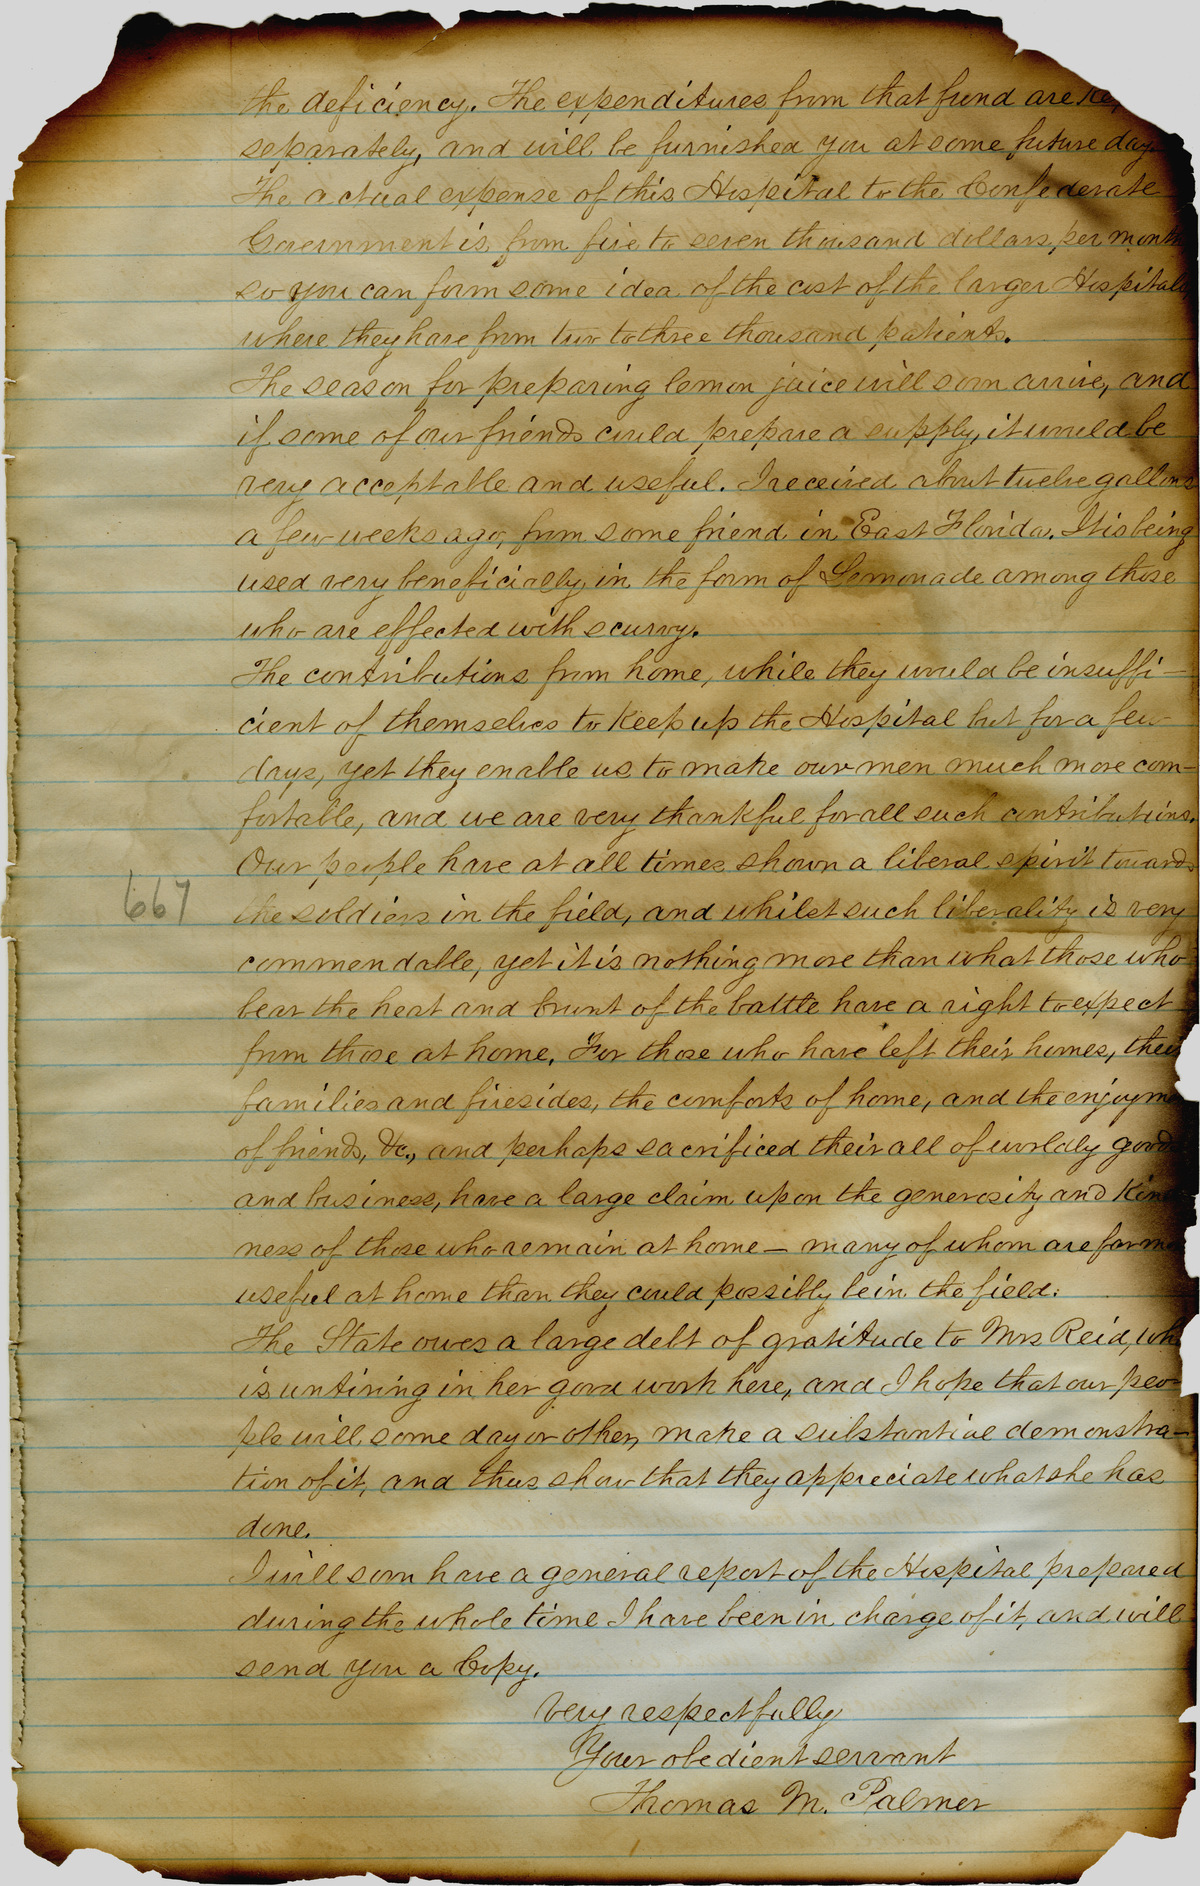 the deficiency. The expenditures from that fund are
separately, and will be furnished you at some future day.
The actual expense of this Hospital to the Confederate
Government is from five to seven thousand dollars per month
so you can form some idea of the cost of the larger Hospitals
where they have from two to three thousand patients.
The season for preparing lemon juice will soon arrive, and
if some of our friends could prepare a supply, it would be
very acceptable and useful. I received about twelve gallons
a few weeks ago, from some friend in East Florida. It is being
used very beneficially in the form of Lemonade among those
who are effected with scurvy.
The contributions from home, while they would be insuffi-
cient of themselves to keep up the Hospital but for a few
days, yet they enable us to make our men much more com-
fortable, and we are very thankful for all such contributions.
Our people have at all times shown a liberal spirit towards
667
the soldiers in the field, and whilst such liberality is very
commendable, yet it is nothing more than what those who
bear the heat and brunt of the battle have a right to expect
from those at home. For those who have left their homes, their
families and firesides, the comforts of home, and the enjoyme
of friends, &c., and perhaps sacrificed their all of worldly goods
and business, have a large claim upon the generosity and kin
ness of those who remain at home — many of whom are far mo
useful at home than they could possibly be in the field.
The State owes a large debt of gratitude to Mrs Reid, wh
is untiring in her good work here, and I hope that our peo
ple will some day or other, make a substantive demonstra-
tion of it, and thus show that they appreciate what she has
done.
I will soon have a general report of the Hospital prepared
during the whole time I have been in charge of it, and will
send you a Copy.
Very respectfully
Your obedient servant
Thomas M. Palmer